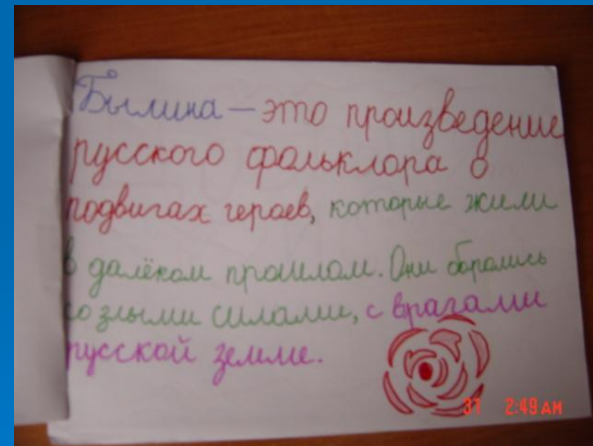 Былина – это произведение
русского фольклора о
подвигах героев, которые жили
в далёком прошлом. Они боролись
со злыми силами, с врагами
русской земли.
31 2:49 AM